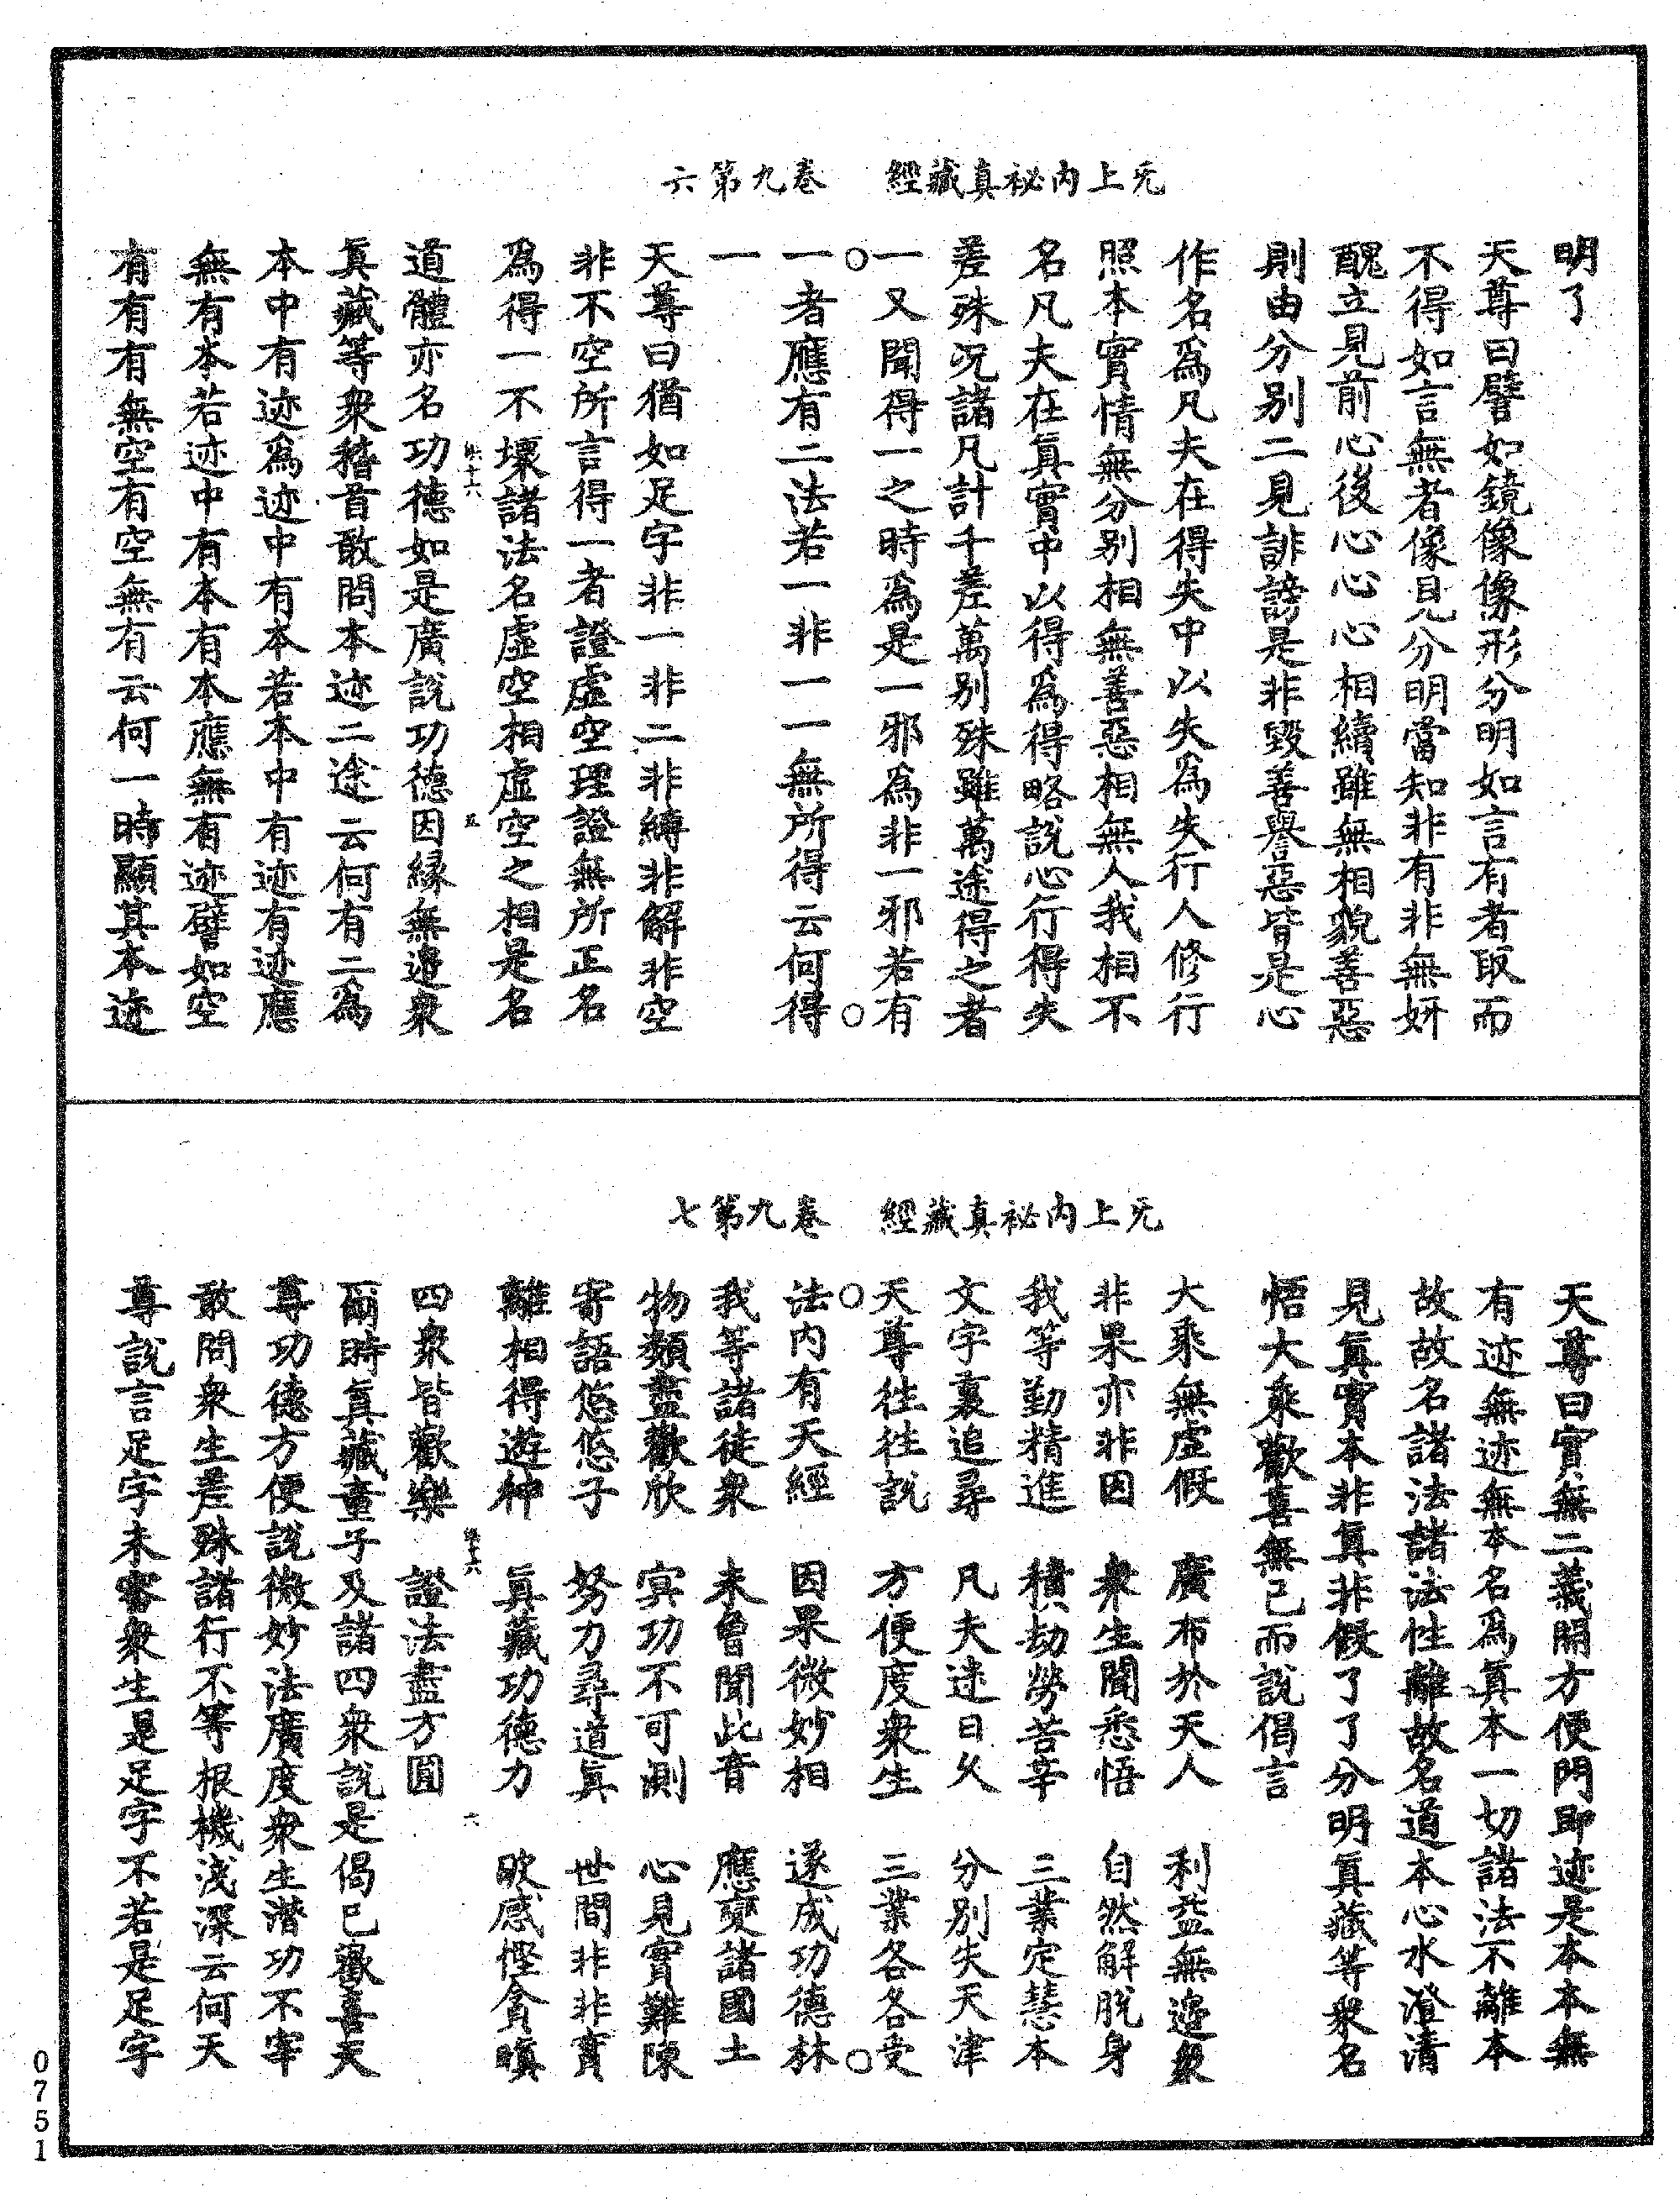 元上內祕真藏經　卷九第六
明了
天尊曰譬如鏡像像形分明如言有者取而
不得如言無者像見分明當知非有非無妍
醜立見前心後心心心相續雖無相貌善惡
則由分別二見誹謗是非毀善譽惡皆是心
作名爲凡夫在得失中以失爲失行人修行
照本實情無分別相無善惡相無人我相不
名凡夫在眞實中以得爲得略說心行得失
差殊況諸凡計千差萬別殊雖萬途得之者
一又聞得一之時爲是一邪爲非一邪若有
一者應有二法若一非一一無所得云何得
一
天尊曰猶如足字非一非二非縛非解非空
非不空所言得一者證虛空理證無所正名
爲得一不壞諸法名虛空相虛空之相是名
道體亦名功德如是廣說功德因緣無邊衆
眞藏等衆稽首敢問本迹二途云何有二爲
本中有迹爲迹中有本若本中有迹有迹應
無有本若迹中有本有本應無有迹譬如空
有有有無空有空無有云何一時顯其本迹
元上內祕真藏經　卷九第七
天尊曰實無二義開方便門即迹是本本無
有迹無迹無本名爲眞本一切諸法不離本
故故名諸法諸法性離故名道本心水澄清
見眞實本非眞非假了了分明眞藏等衆名
悟大乘歡喜無已而說偈言
大乘無虛假　廣布於天人　利益無邊衆
非果亦非因　衆生聞悉悟　自然解脫身
我等勤精進　積劫勞苦辛　三業定慧本
文字裏追尋　凡夫迷日久　分別失天津
天尊往往說　方便度衆生　三業各各受
法內有天經　因果微妙相　遂成功德林
我等諸徒衆　未曾聞此音　應變諸國土
物類盡歡欣　冥功不可測　心見實難陳
寄語悠悠子　努力尋道眞　世間非非實
離相得遊神　眞藏功德力　歇感慳貪瞋
四衆皆歡樂　證法盡方圓
爾時眞藏童子及諸四衆說是偈已歡喜天
尊功德方便說微妙法廣度衆生潛功不宰
敢問衆生差殊諸行不等根機淺深云何天
尊說言足字未審衆生是足字不若是足字
0751